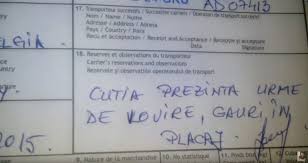 AD07413
17. Transporteur successifs / Successive carriers / Operatori de transport succesivi
Nom / Name / Nume
Adresse / Address / Adresa
Pays / Country / Tara
Recu et acceptation / Receipt and Acceptance / Recepție și acceptare
Data Signature
LGIA
18. Reserves et observations du transporteur
Carrier's reservations and observations
Rezervele și observațiile operatorului de transport
CUTIA PREZINTA URME
DE LOVIRE, GAURI, IN
PLACAJ.
2015.
9. Nature de la marchandise
10. No statistique
11.
12.